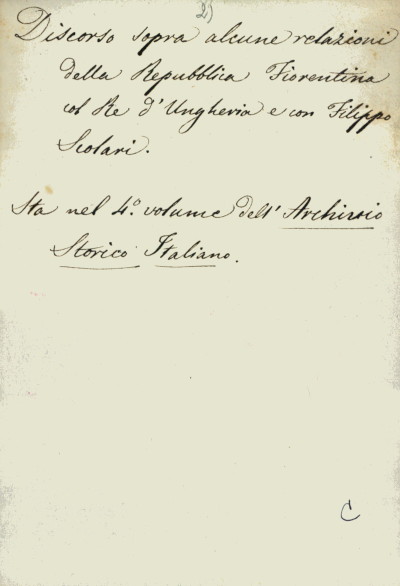 2)
Discorso sopra alcune relazioni
della Repubblica Fiorentina
col Re d'Ungheria e con Filippo
Scolari.
Sta nel 4.º volume dell' Archivio
Storico Italiano.
C